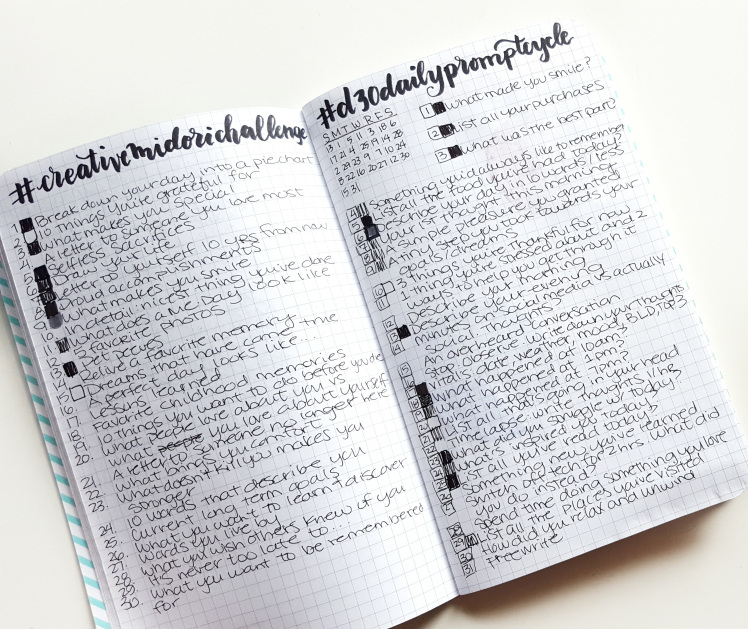 #creativemidorichallenge
1. Break down your day into a piechart
2. 10 things you're grateful for
3. What makes you special
4. A letter to someone you love most
5. Selfless sacrifices
6. Draw your life
7. Letter to yourself 10 yrs from now
8. Proud accomplishments
9. What makes you smile
10. In detail nicest thing you've done
11. What does a "Me Day" look like
12. Favorite photos
13. Pet peeves
14. Relive a favorite memory
15. Dreams that have come true
16. Perfect day looks like...
17. Lesson learned
18. Favorite childhood memories
19. 10 things you want to do before you die
20. What people are about you vs
what you love about yourself
21. A letter to someone no longer here
22. What brings you comfort
23. What doesn't kill you makes you
stronger
24. 10 words that describe you
25. Current long term goals
26. What you want to learn & discover
27. Words you live by
28. What you wish others knew of you
29. It's never too late to...
30. What you want to be remembered
for
#d30dailypromptcycle
S M T W R F S
13 1 5 11 3 18 6
17 21 4 25 19 14 28
2 29 23 9 7 10 24
8 22 16 20 27 12 30
15 31
1 What made you smile?
2 List all your purchases
3 What was the best part?
4 Something you'd always like to remember
5 List all the food you've had today
6 Describe your day in 10 words/less
7 1st thought in this morning
8 A simple pleasure you granted
9 A tiny step you took towards your
goals/dreams
10 3 things you're thankful for now
11 Things you're stressed about and 2
ways to help you get through it
12 Describe your morning
13 Describe your evening
14 minutes on social media is actually
social. Thoughts
15 An overheard conversation
16 Stop observe write down your thoughts
17 Vitals date weather, mood, B,L,D, TOP 3
18 What happened at 10am?
19 What happened at 1pm?
20 List all things going in your head
21 Time lapse: write thoughts 1/hr
22 What did you struggle w/ today?
23 What inspired you today?
24 List all you've read today
25 Something new you've learned
26 Switch off tech for 2 hrs. What did
you do instead?
27 Spend time doing something you love
28 List all the places you've visited
29 How did you relax and unwind
31 Freewrite